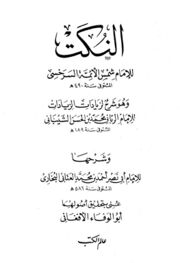 النكت
للإمام شمس الأئمة السرخسي
المتوفى سنة ٤٩٠ هـ
وهو شرح لزيادات الزيادات
للإمام الرباني محمد بن الحسن الشيباني
المتوفى سنة ١٨٩ هـ
وشرحها
للإمام أبي نصر أحمد بن محمد العتابي البخاري
المتوفى سنة ٥٨٦ هـ
عنى بتحقيق أصولهما
أبو الوفاء الأفغاني
عالم الكتب